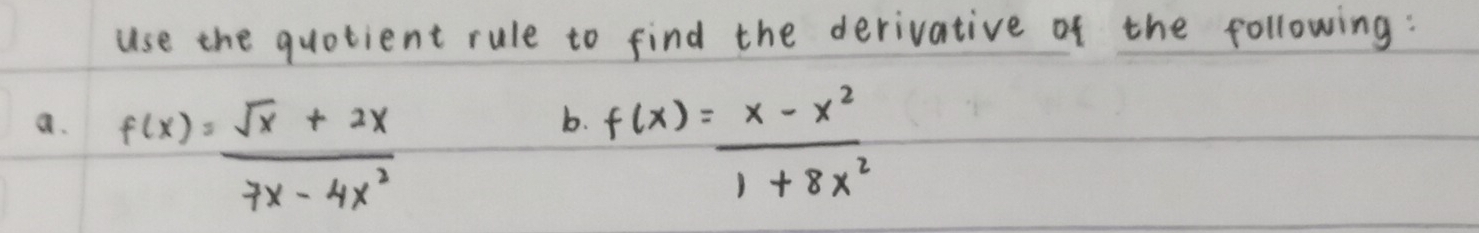 Use the quotient rule to find the derivative of the following:
a. f(x) = √x + 2x b. f(x) = x - x²
7x - 4x² 1 + 8x²